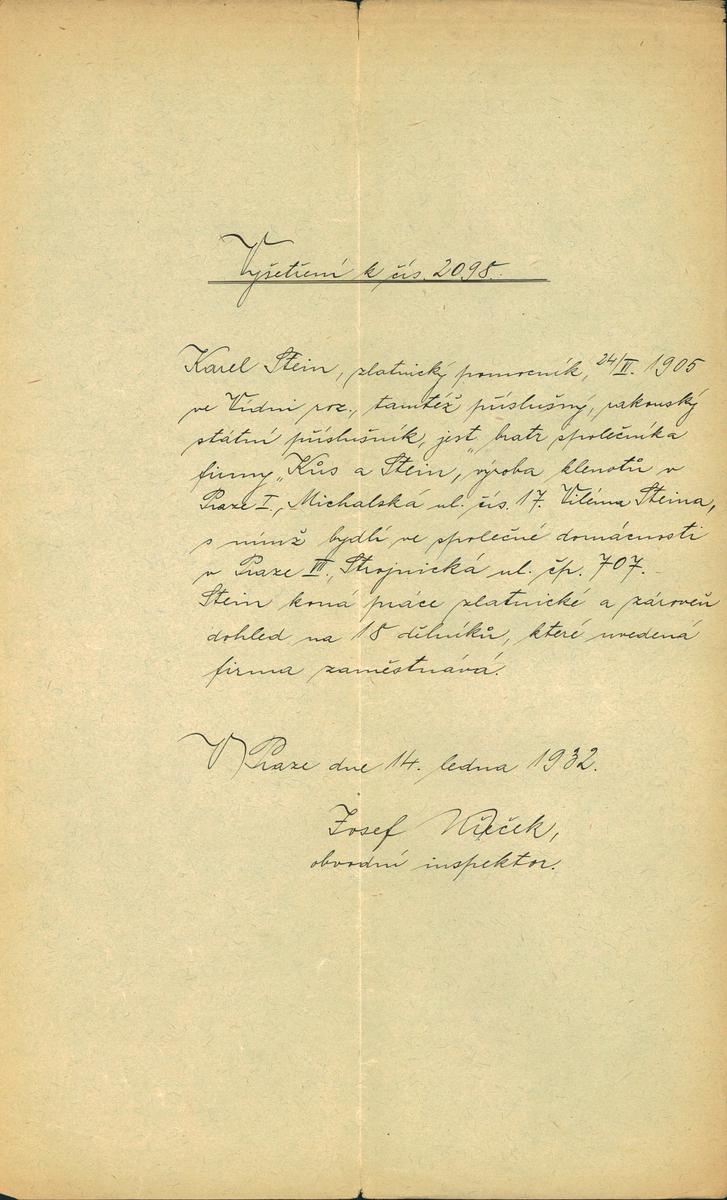 Vyšetření k čís. 2098.
Karel Stein, zlatnický pomocník, 24/II. 1905
ve Vídni roz., tamtéž příslušný, rakouský
státní příslušník, jest bratr společníka
firmy „Kůs a Stein, výroba klenotů v
Praze I., Michalská ul. čís. 17. Viléma Steina,
s nímž bydlí ve společné domácnosti
v Praze VII., Strojnická ul. čp. 707.
Stein koná práce zlatnické a zároveň
dohled na 18 dělníků, které uvedená
firma zaměstnává.
V Praze dne 14. ledna 1932.
Josef
obvodní inspektor.